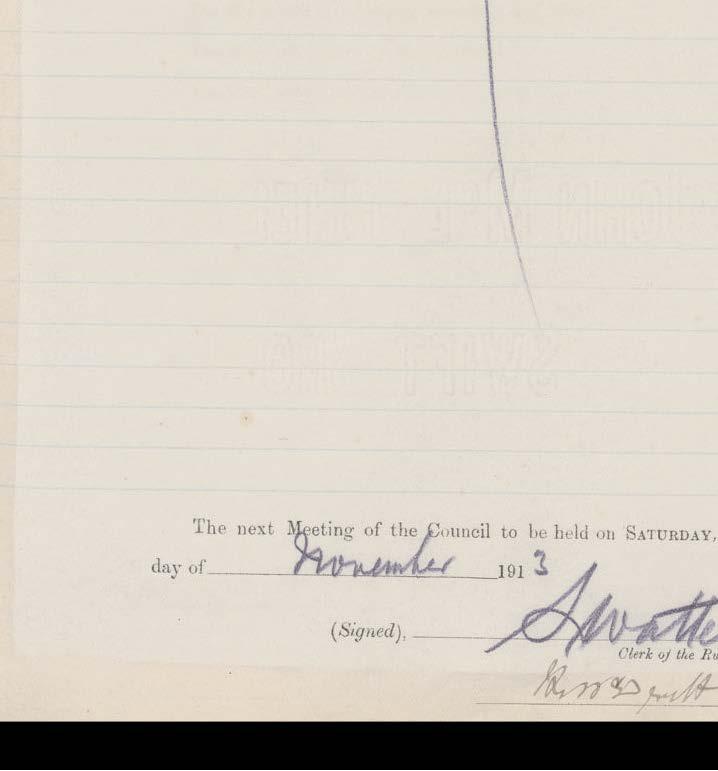 The next Meeting of the Council to be held on SATURDAY,
day of November 1913
(Signed),
Clerk of the Ru